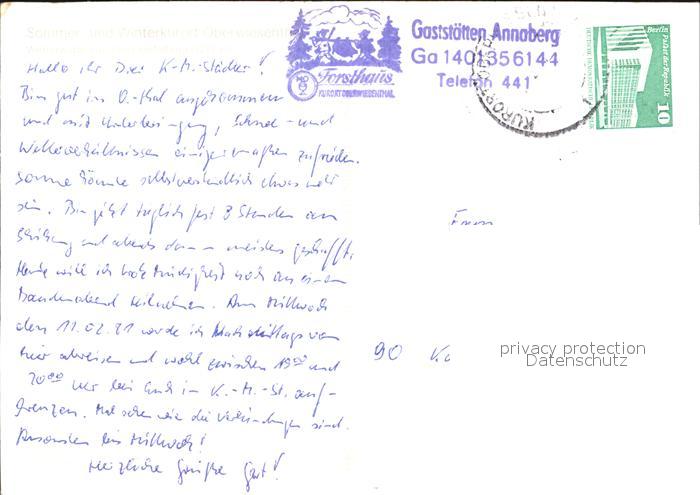 Sommer- und Winterkurort Oberwiesenthal
Forsthaus
KURORT OBERWIESENTHAL
HO
Gaststätten Annaberg
Ga 140 1356144
Telefon 441
KURORT
Berlin Palast der Republik
DEUTSCHE DEMOKRATISCHE REPUBLIK
10
Hallo ihr Drei K.-M.-Städter!
Bin gut in O.-thal angekommen
und mit Unterbringung, Schnee- und
Wetterverhältnissen einigermaßen zufrieden.
Sonne könnte selbstverständlich etwas mehr
sein. Bin jetzt täglich fast 8 Stunden am
und abends dann meistens geschafft.
Heute will ich trotz Müdigkeit noch an einem
Bandenabend teilnehmen. Am Mittwoch
dem 11.02.81 werde ich Nachmittags von
hier abreisen und wohl zwischen 19⁰⁰ und
20⁰⁰ Uhr bei Euch in K.-M.-St. auf-
kreuzen. Mal sehen wie die Verbindungen sind.
Ansonsten bis Mittwoch!
Herzliche Grüße Gert!
Fam
90 Ka
privacy protection
Datenschutz